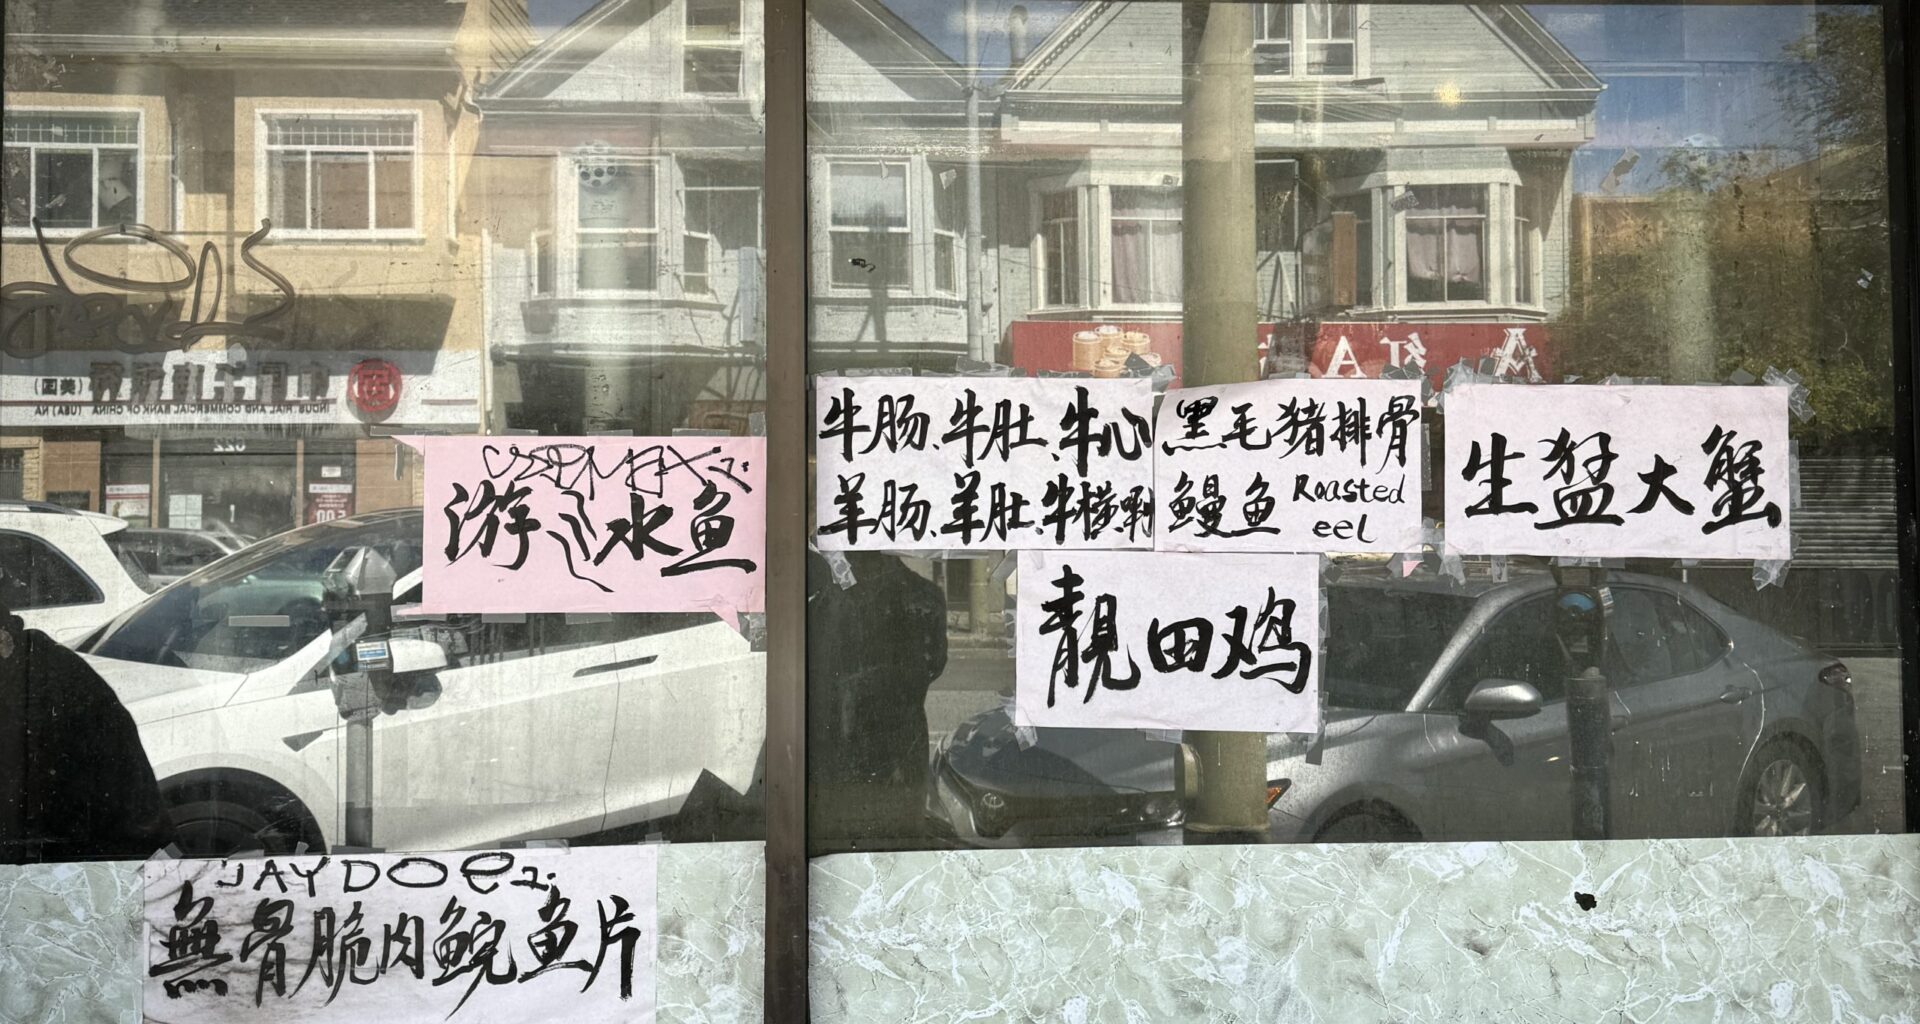 INDUSTRIAL AND COMMERCIAL BANK OF CHINA (USA) NA
(美国)
红A
游水鱼
牛肠、牛肚、牛心
羊肠、羊肚、牛横唎
黑毛猪排骨
鳗鱼 Roasted
eel
生猛大蟹
靚田鸡
JAYDOe2.
無骨脆肉鲩鱼片